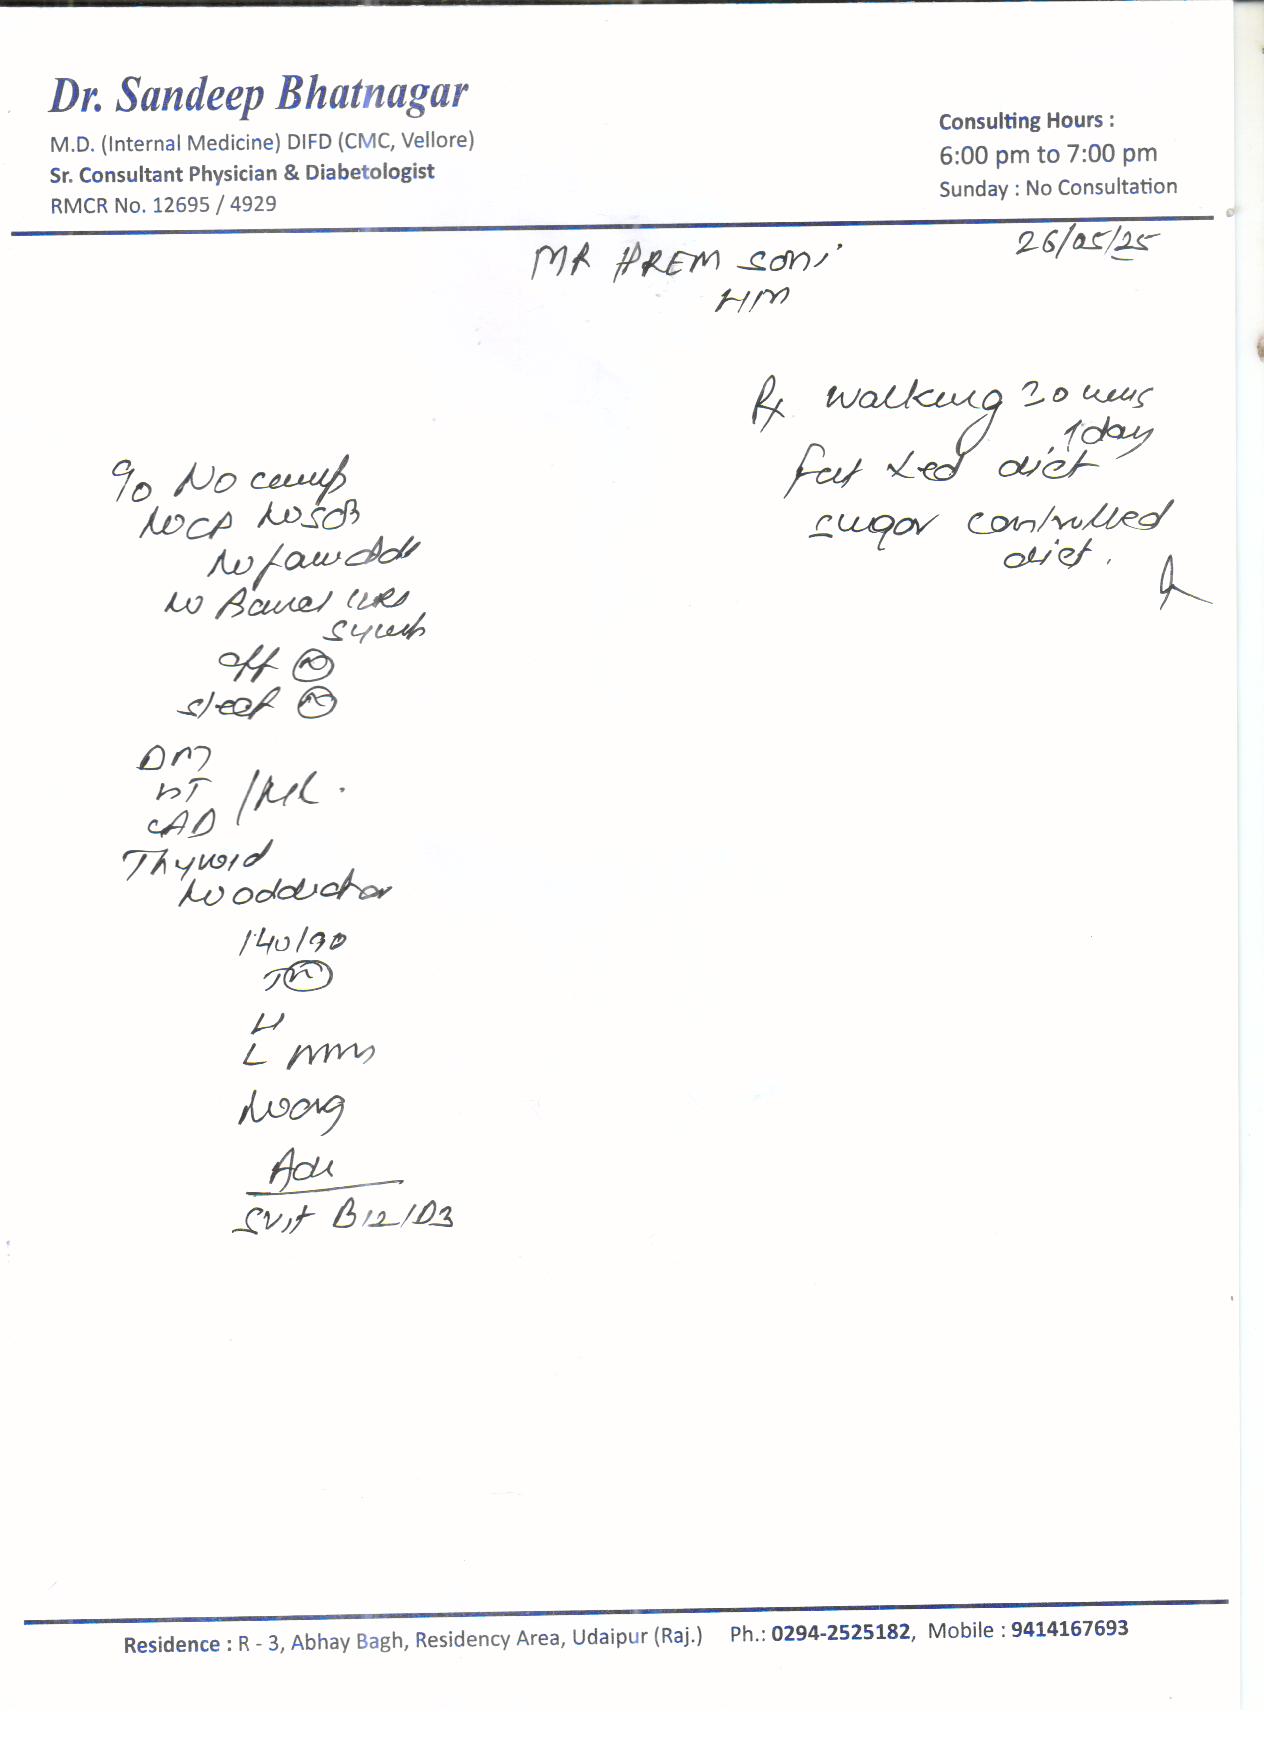 Dr. Sandeep Bhatnagar
M.D. (Internal Medicine) DIFD (CMC, Vellore)
Sr. Consultant Physician & Diabetologist
RMCR No. 12695 / 4929
Consulting Hours :
6:00 pm to 7:00 pm
Sunday : No Consultation
26/05/25
MR PREM SONI
Rx walking
/day
Fat diet
sugar controlled
diet.
No
No CP No SOB
No
No
sleep N
DM
HT / Nil.
CAD
Thyroid
No addiction
140/90
Adv
S Vit B12/D3
Residence : R - 3, Abhay Bagh, Residency Area, Udaipur (Raj.) Ph.: 0294-2525182, Mobile : 9414167693